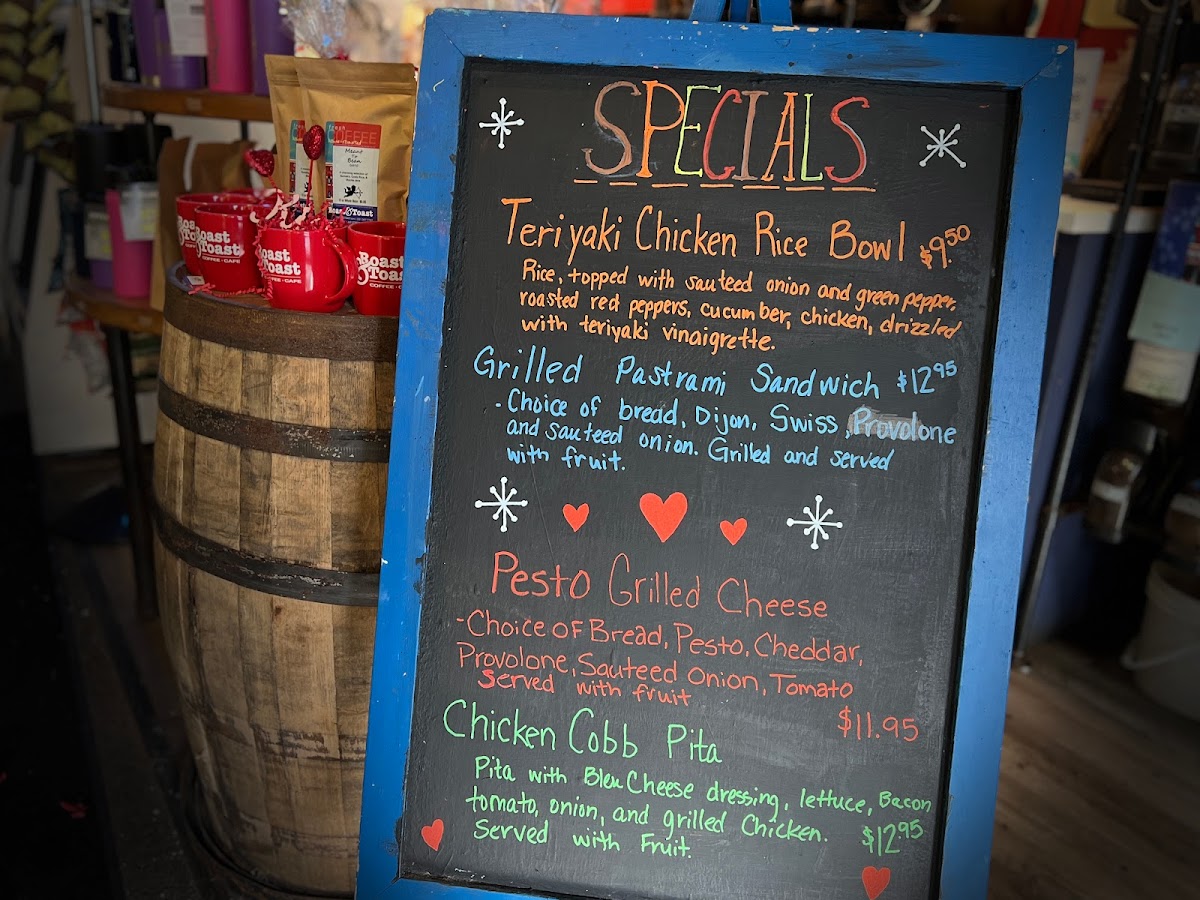 SPECIALS
Teriyaki Chicken Rice Bowl $9.50
Rice, topped with sauteed onion and green pepper,
roasted red peppers, cucumber, chicken, drizzled
with teriyaki vinaigrette.
Grilled Pastrami Sandwich $12.95
- Choice of bread, Dijon, Swiss, Provolone
and sauteed onion. Grilled and served
with fruit.
Pesto Grilled Cheese
- Choice of Bread, Pesto, Cheddar,
Provolone, Sauteed Onion, Tomato
Served with fruit
$11.95
Chicken Cobb Pita
Pita with Bleu Cheese dressing, lettuce, Bacon
tomato, onion, and grilled Chicken.
$12.95
Served with Fruit.
COFFEE
Meant
to
Bean
Roast & Toast
Roast
& Toast
COFFEE • CAFE
oast
Toast
COFFEE • CAFE
Roast
& Toast
COFFEE • CAFE